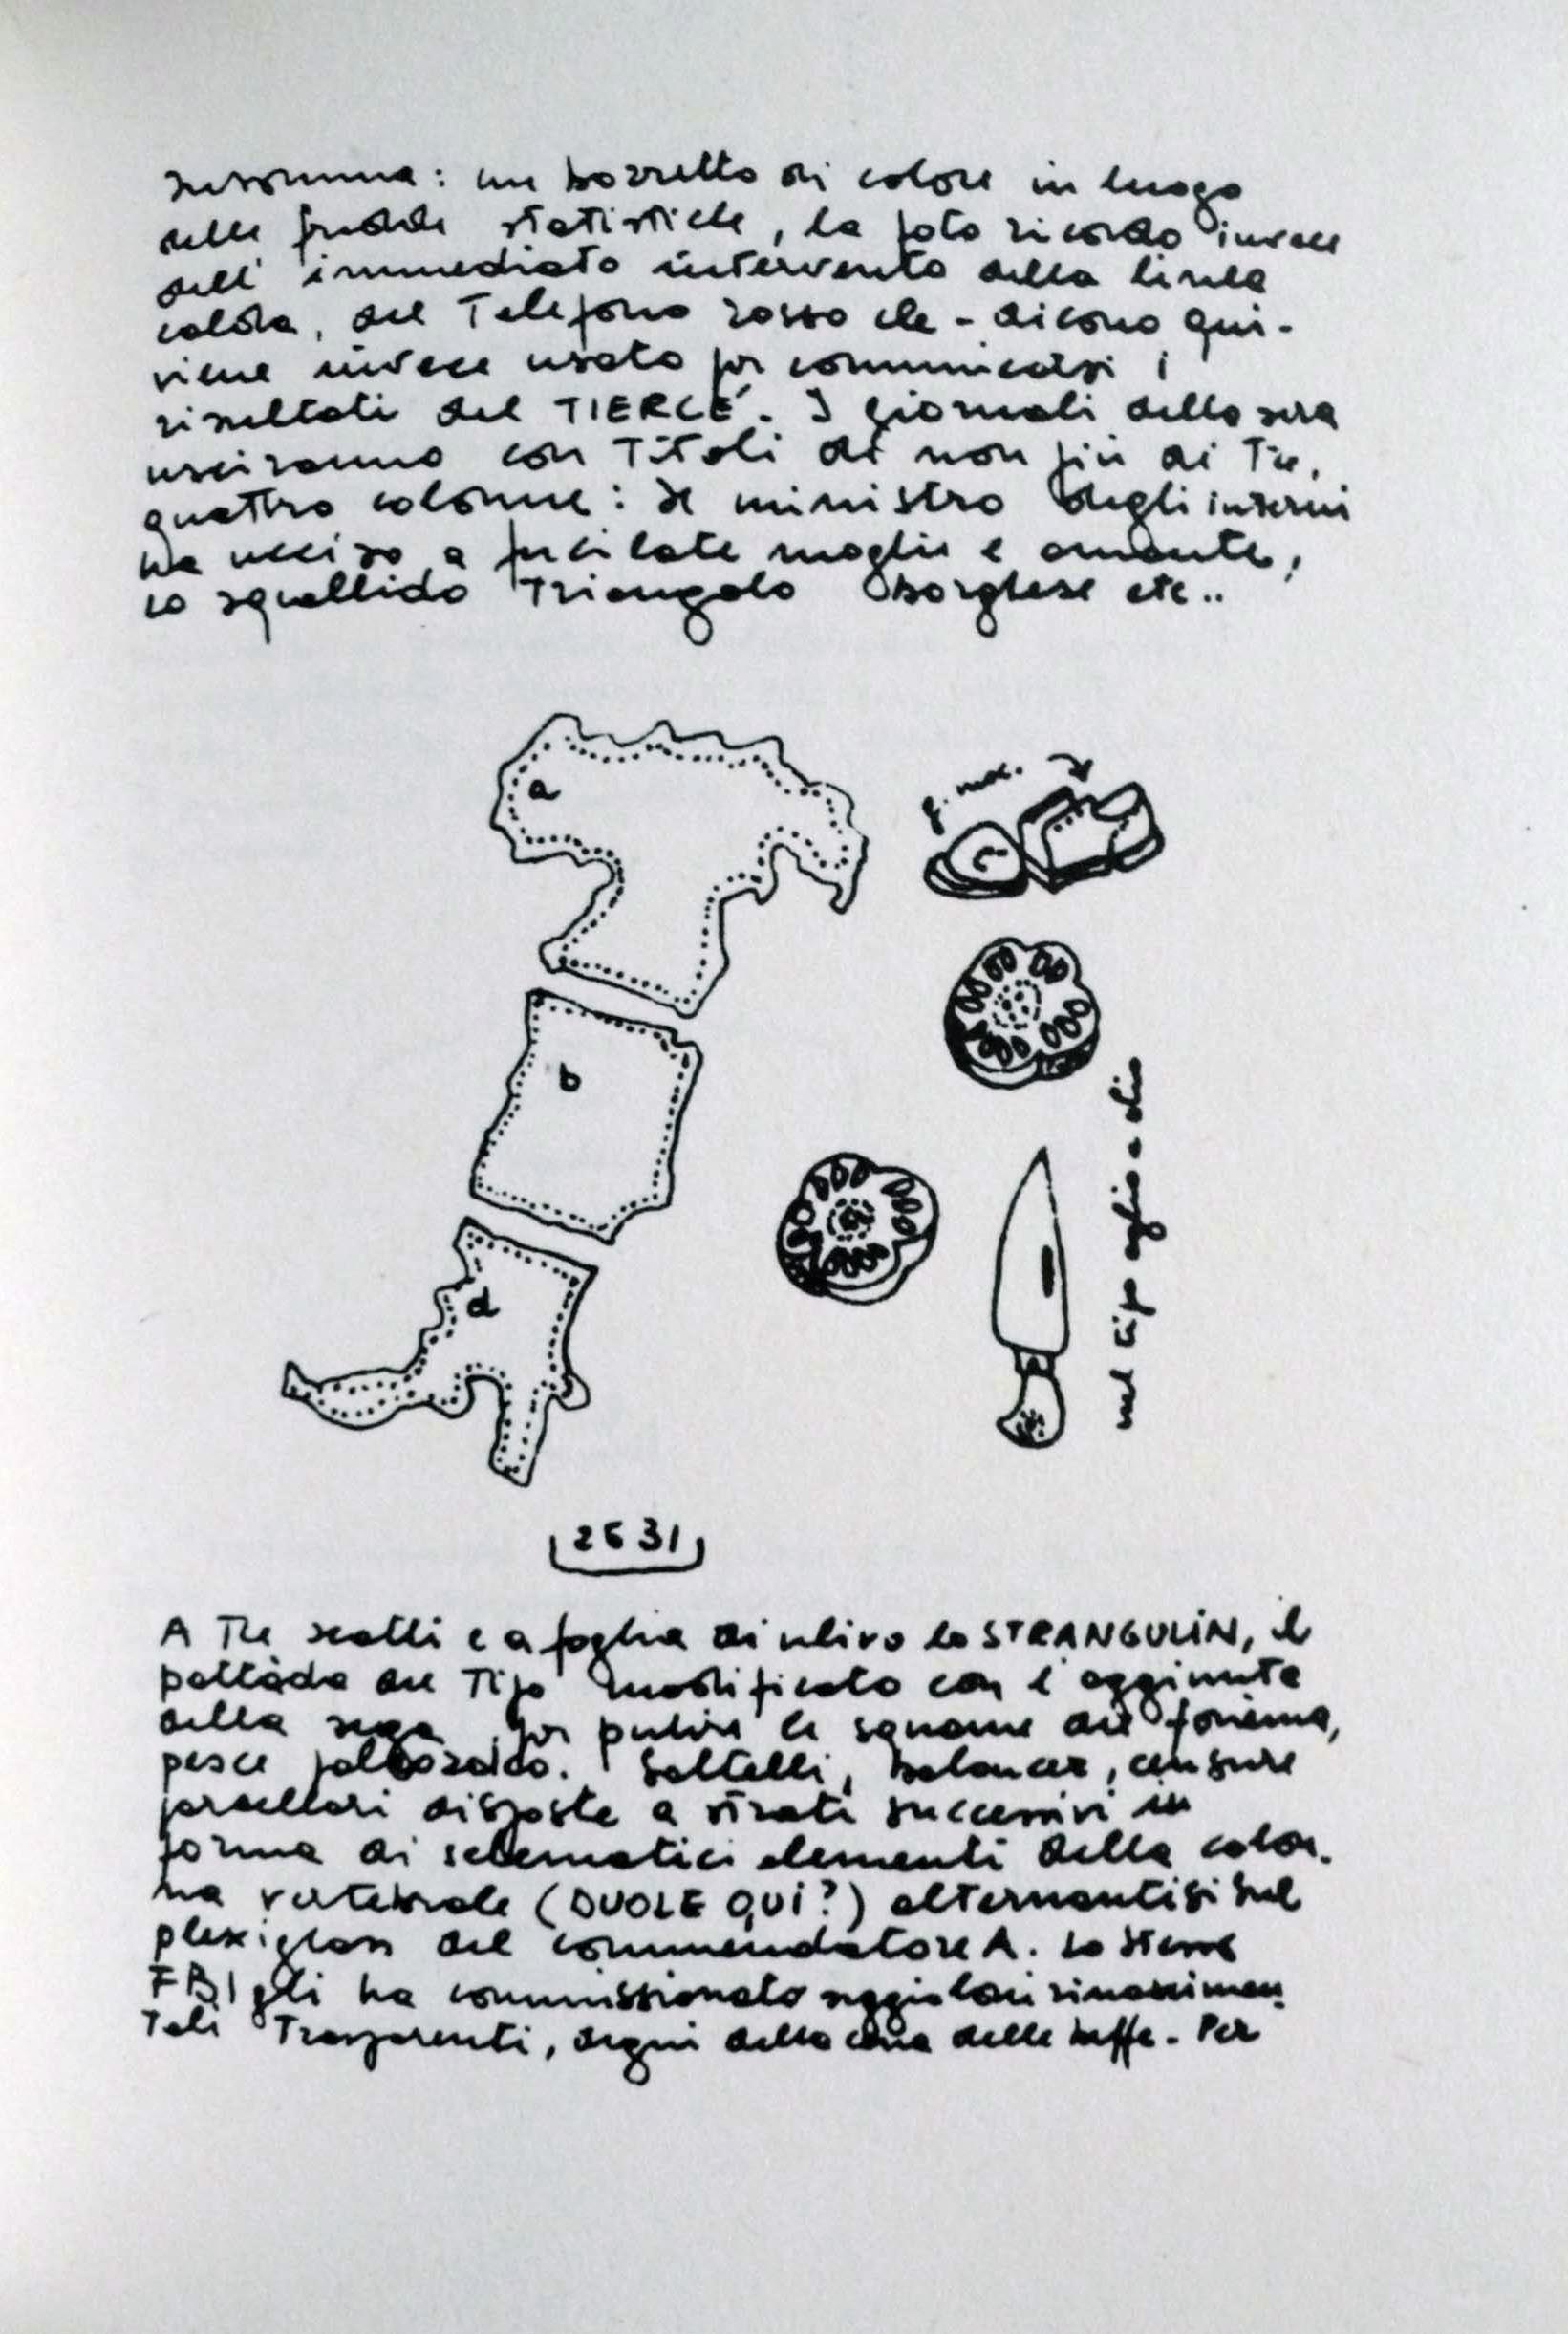 Insomma: un bozzetto di colore in luogo
delle fredde statistiche, la foto ricordo invece
dell'immediato intervento della linea
calda, del Telefono rosso che - dicono qui -
viene invece usato per comunicarsi i
risultati del TIERCÉ. I giornali della sera
usciranno con Titoli di non più di Tre,
quattro colonne: il ministro degli interni
ha ucciso a fucilate moglie e amante,
lo squallido Triangolo borghese etc..
a
b
d
nel tipo aglio e olio
2631
A Tre scatti e a foglia di ulivo lo STRANGULIN, il
pattàda del Tipo modificato con l'aggiunta
della sega per pulire le squame del fonèma,
pesce paleozoico. Coltelli, balances, censure
disposte a strati successivi in
forma di schematici elementi della colon.
na vertebrale (DUOLE QUI?) alternantisi sul
plexiglass del commendatore A. Lo stesso
FBI gli ha commissionato seggioloni rinascimen
Tali Trasparenti, degni della cena delle beffe. Per